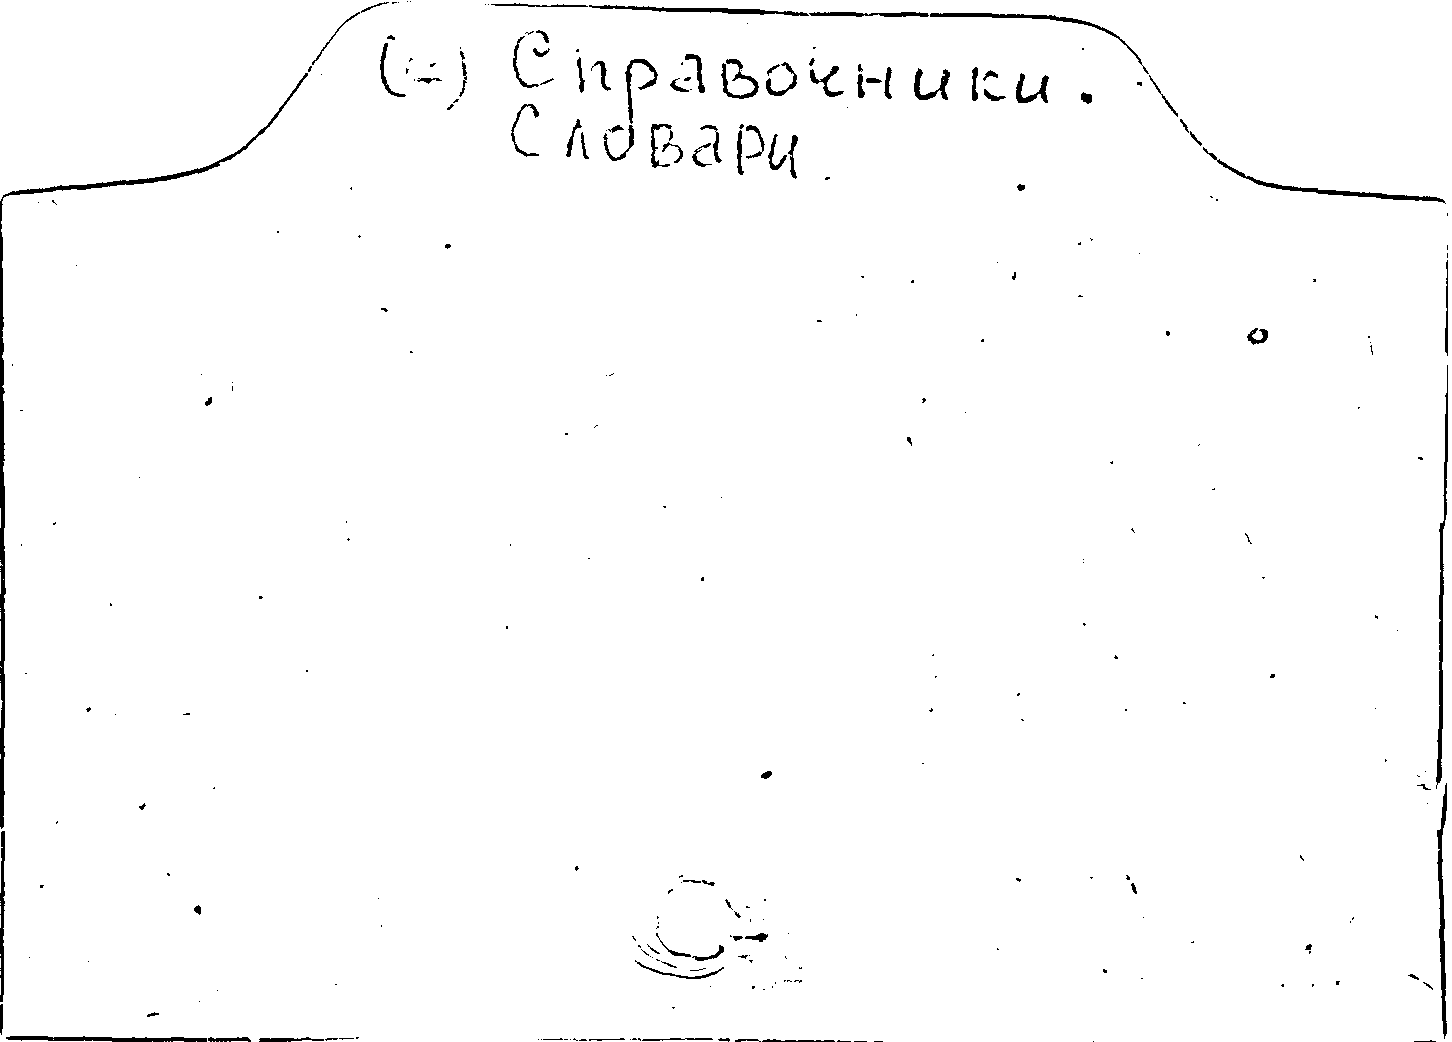 Справочники.
Словари